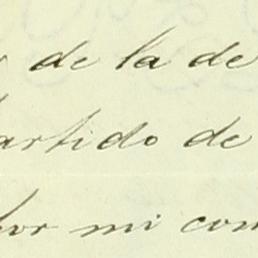 de la de
artido de
por mi com